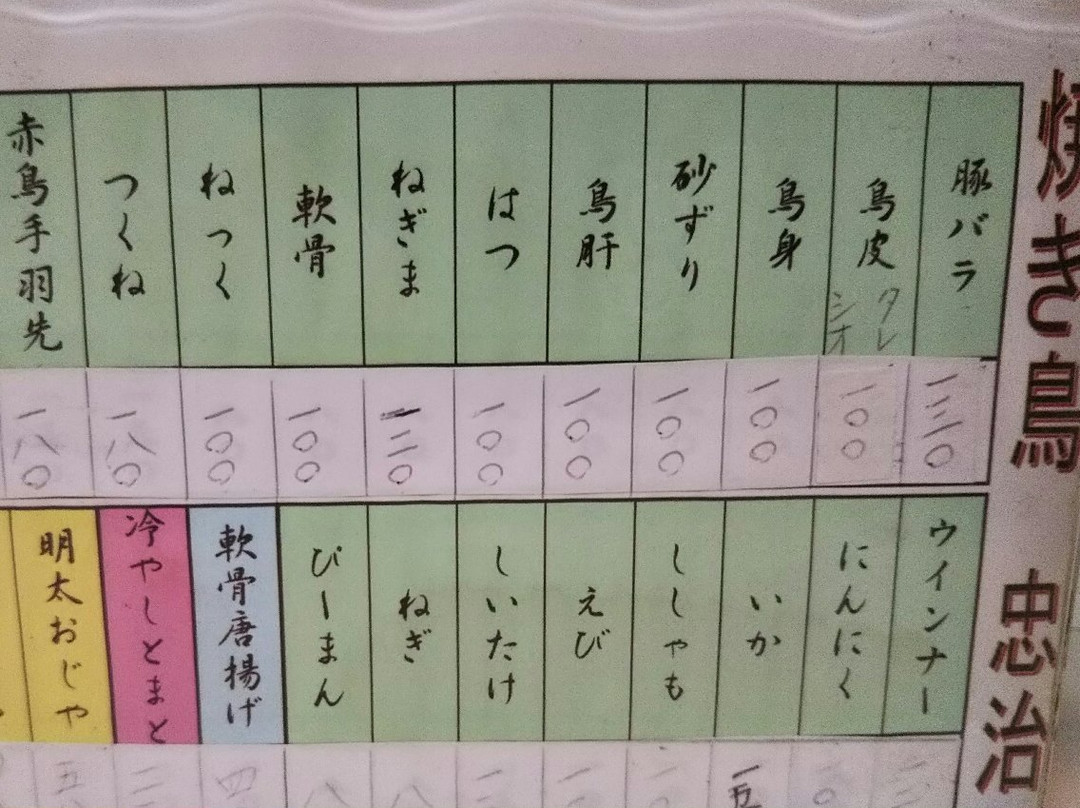 焼き鳥 忠治
豚バラ
一三〇
鳥皮
タレ
シオ
一〇〇
鳥身
一〇〇
砂ずり
一〇〇
鳥肝
一〇〇
はつ
一〇〇
ねぎま
一三〇
軟骨
一〇〇
ねっく
一〇〇
つくね
一八〇
赤鳥手羽先
一八〇
ウインナー
にんにく
いか
ししゃも
えび
しいたけ
ねぎ
ぴーまん
軟骨唐揚げ
冷やしとまと
明太おじや